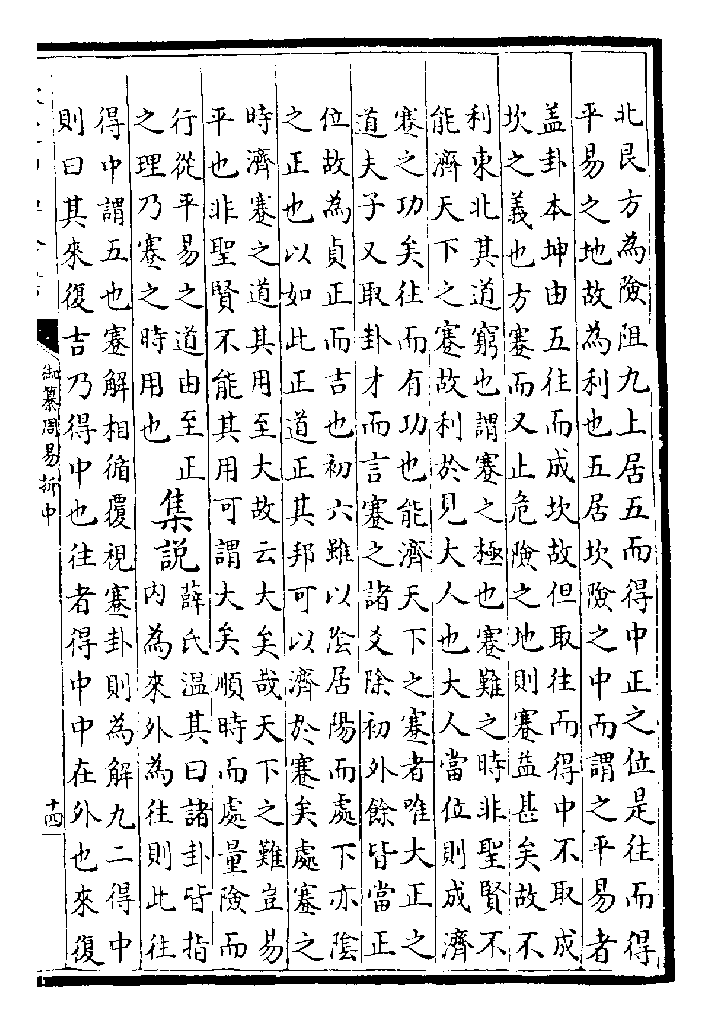 北艮方為險阻九上居五而得中正之位是往而得
平易之地故為利也五居坎險之中而謂之平易者
盖卦本坤由五往而成坎故但取往而得中不取成
坎之義也方蹇而又止危險之地則蹇益甚矣故不
利東北其道窮也謂蹇之極也蹇難之時非聖賢不
能濟天下之蹇故利於見大人也大人當位則成濟
蹇之功矣往而有功也能濟天下之蹇者唯大正之
道夫子又取卦才而言蹇之諸爻除初外餘皆當正
位故為貞正而吉也初六雖以陰居陽而處下亦陰
之正也以如此正道正其邦可以濟於蹇矣處蹇之
時濟蹇之道其用至大故云大矣哉天下之難豈易
平也非聖賢不能其用可謂大矣順時而處量險而
行從平易之道由至正
之理乃蹇之時用也
集說
薛氏溫其曰諸卦皆指
內為來外為往則此往
得中謂五也蹇解相循覆視蹇卦則為解九二得中
則曰其來復吉乃得中也往者得中中在外也來復
御纂周易折中
十四